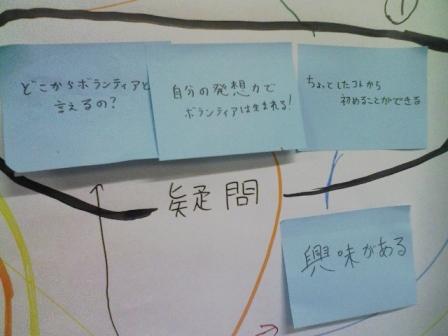 ①
どこからボランティアと
言えるの?
自分の発想力で
ボランティアは生まれる!
ちょっとしたコトから
初めることができる
疑問
興味がある